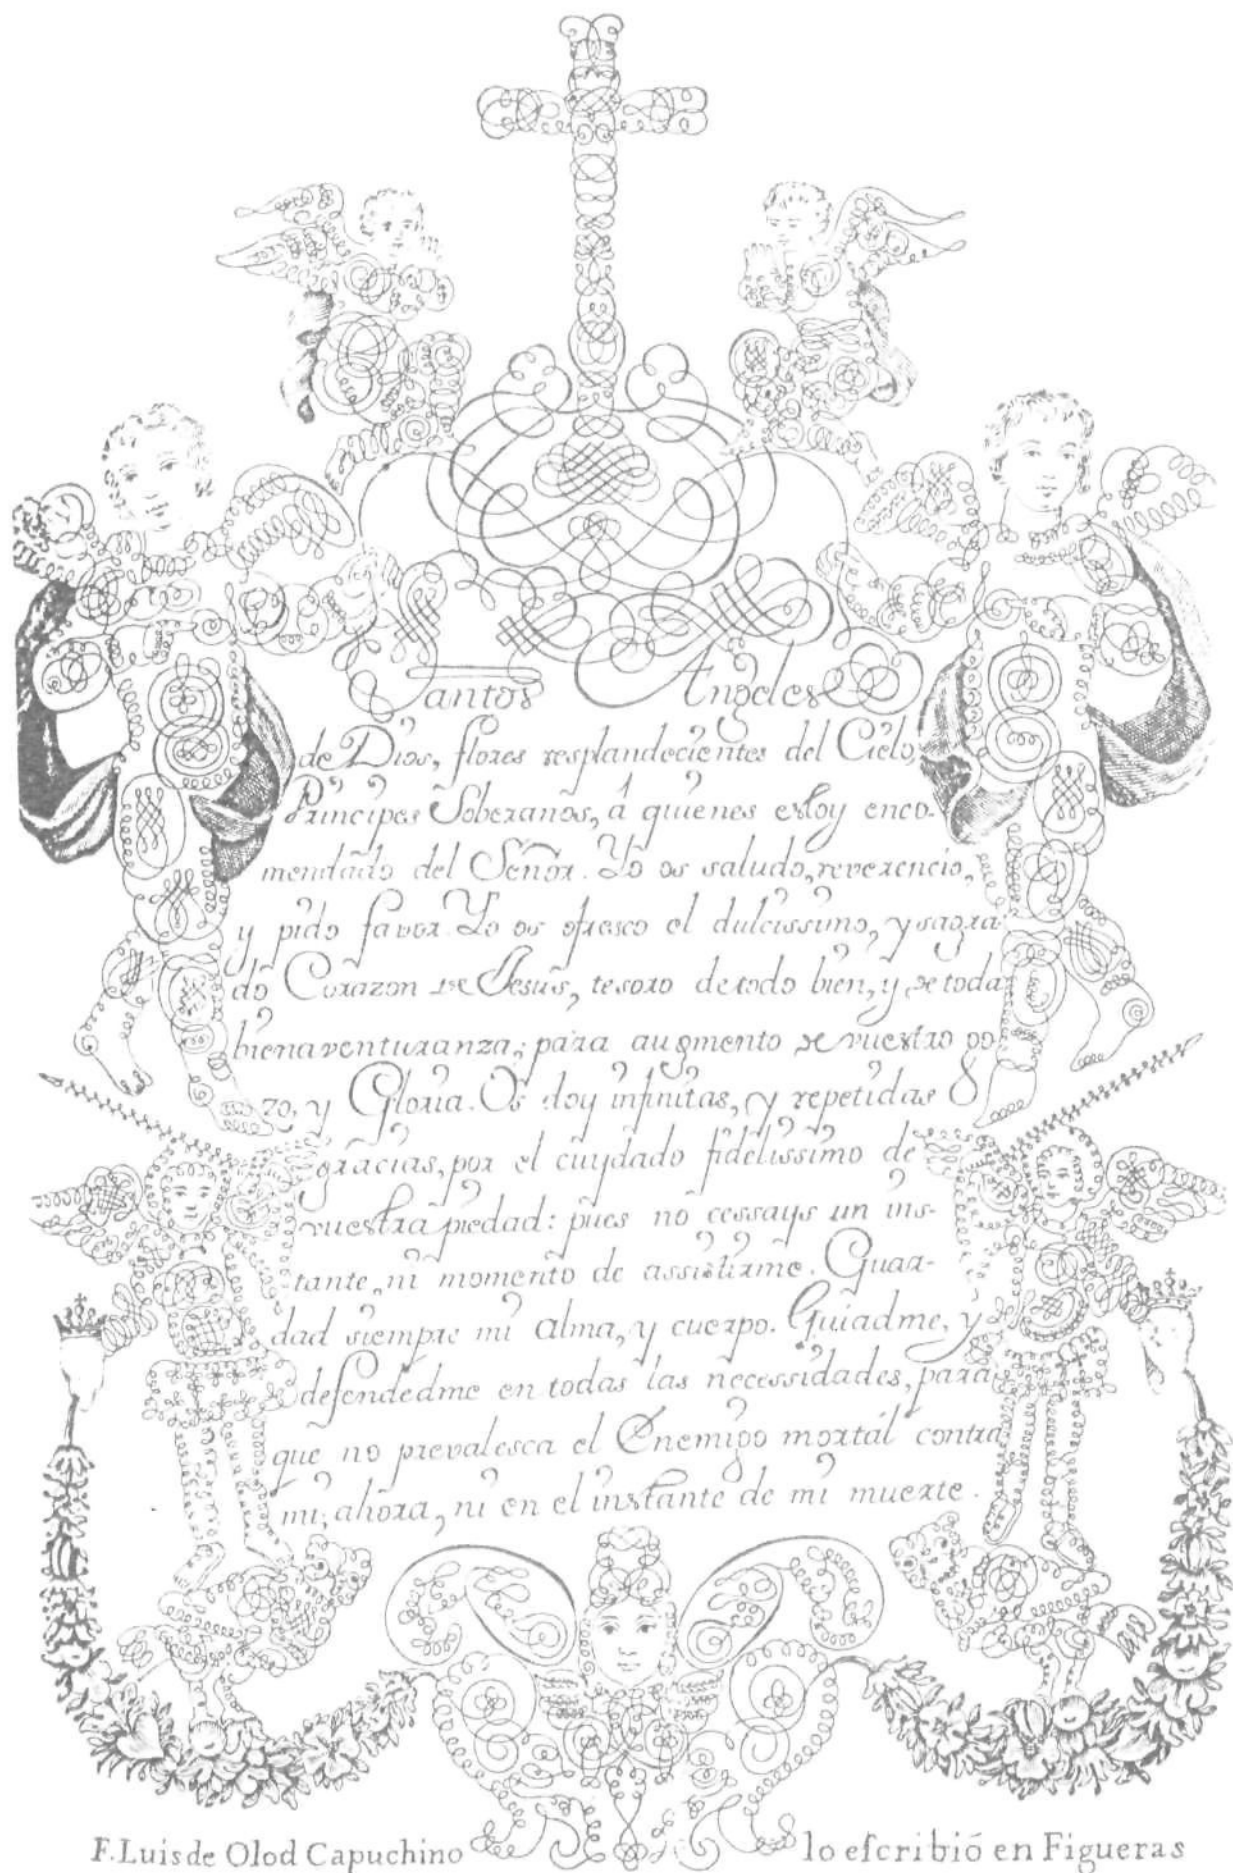 Santos Angeles
de Dios, flores resplandecientes del Cielo,
Principes Soberanos, á quienes estoy enco-
mendado del Señor. Yo os saludo, reverencio,
y pido favor. Yo os ofresco el dulcissimo, y sagra-
do Corazon de Jesus, tesoro de todo bien, y de toda
bienaventuranza; para augmento de vuestro go-
zo, y Gloria. Os doy infinitas, y repetidas
gracias, por el cuydado fidelissimo de
vuestra piedad: pues no cessays un ins-
tante, ni momento de assistirme. Guar-
dad siempre mi alma, y cuerpo. Guiadme, y
defendedme en todas las necessidades, para
que no prevalesca el Enemigo mortál contra
mi, ahora, ni en el instante de mi muerte.
F. Luis de Olod Capuchino lo escribió en Figueras